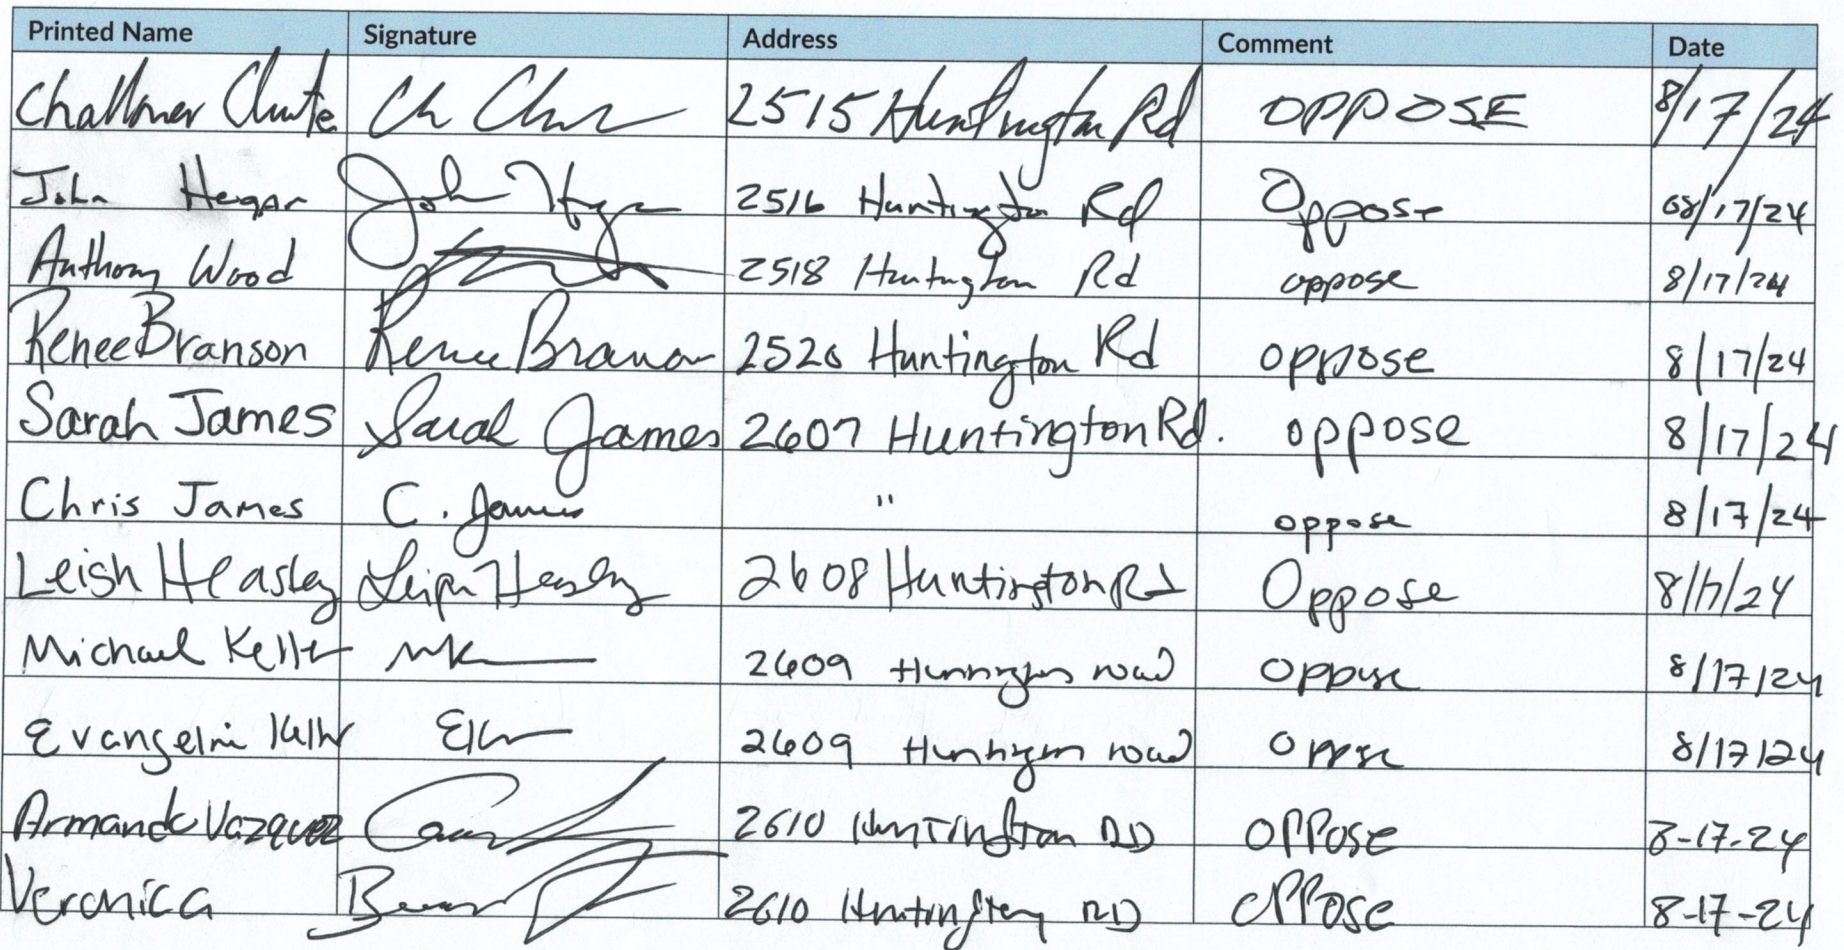 Printed Name Signature Address Comment Date
Challoner Chute 2515 Huntington Rd OPPOSE 8/17/24
John Hegar John Hegar 2516 Huntington Rd Oppose 08/17/24
Anthony Wood 2518 Huntington Rd oppose 8/17/24
Renee Branson Renee Branson 2520 Huntington Rd oppose 8/17/24
Sarah James Sarah James 2607 Huntington Rd. oppose 8/17/24
Chris James C. James " oppose 8/17/24
Leigh Heasley Leigh Heasley 2608 Huntington Rd Oppose 8/17/24
Michael Keller MK 2609 Huntington road oppose 8/17/24
Evangelin Keller 2609 Huntington road oppose 8/17/24
Armando Vazquez 2610 Huntington RD OPPose 8-17-24
Veronica 2610 Huntington RD OPPose 8-17-24